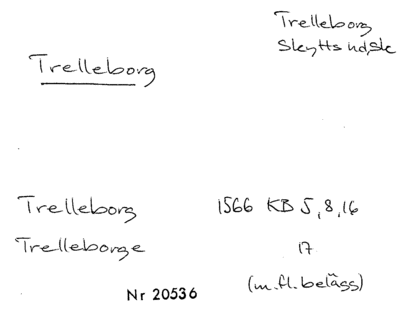 Trelleborg
Skytts hd, Sk
Trelleborg
Trelleborg 1566 KB 5, 8, 16
Trelleborge 17
(m.fl. belägg)
Nr 20536